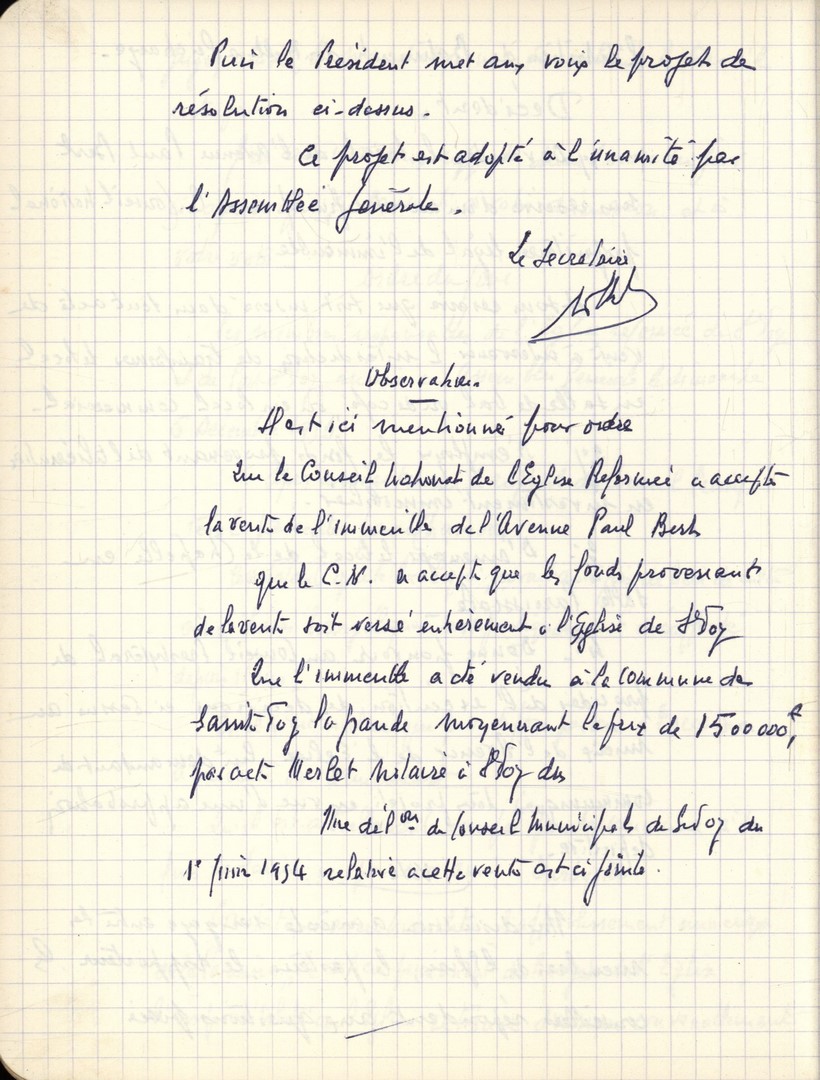 Puis le Président met aux voix le projet de
résolution ci-dessus.
Ce projet est adopté à l'unamité par
l'Assemblée Générale.
Le Secrétaire
Observation
Il est ici mentionné pour ordre
Que le Conseil National de l'Eglise Reformée a accepté
la vente de l'immeuble de l'Avenue Paul Bert
que le C.N. a accepté que les fonds provenant
de la vente soit versé entièrement à l'Eglise de Ste Foy
Que l'immeuble a été vendu à la Commune de
Sainte Foy la Grande moyennant le prix de 1500000 f,
par acte Merlet Notaire à Ste Foy du
Une dél on du Conseil Municipal de Ste Foy du
1er Juin 1954 relative a cette vente est ci jointe.